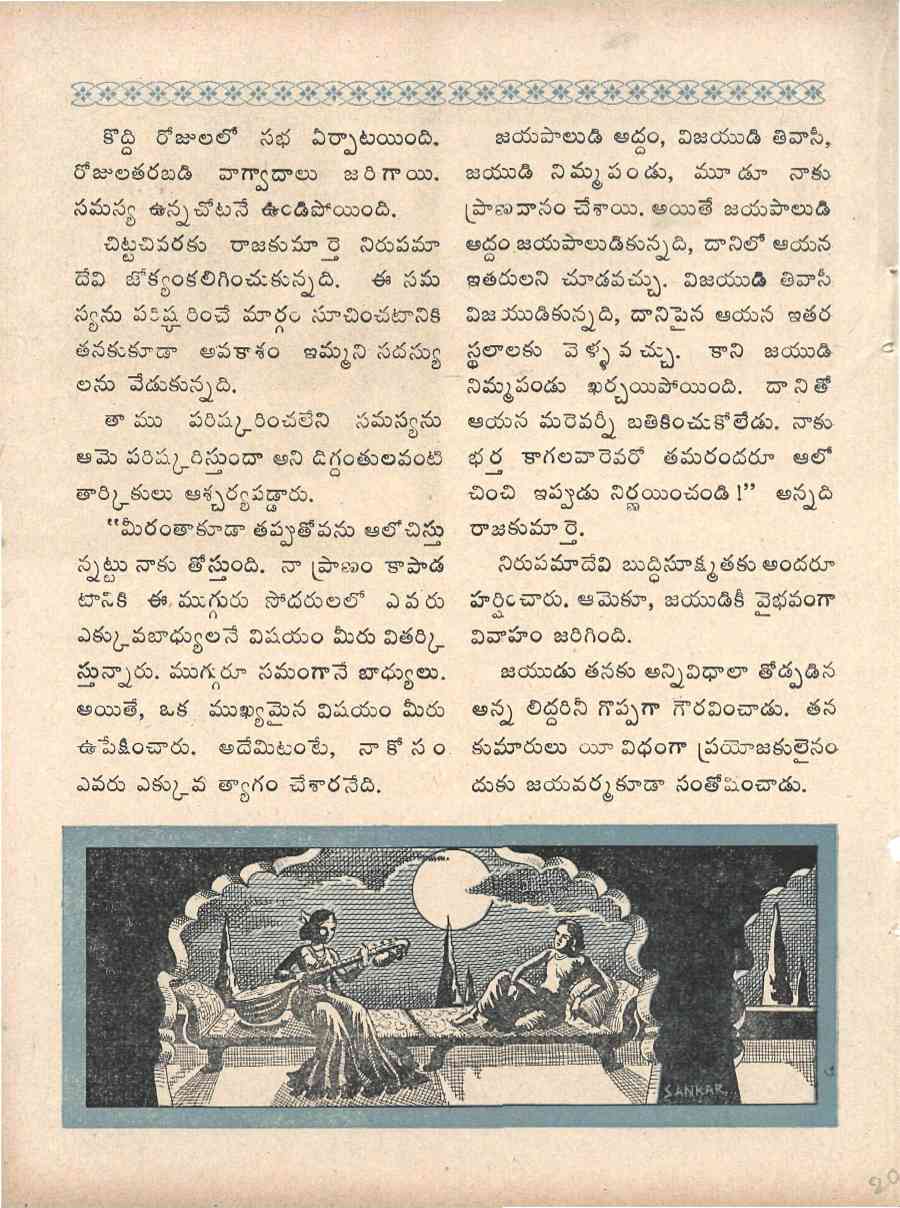 కొద్ది రోజులలో సభ ఏర్పాటయింది.
రోజులతరబడి వాగ్వాదాలు జరిగాయి.
సమస్య ఉన్నచోటనే ఉండిపోయింది.
చిట్టచివరకు రాజకుమార్తె నిరుపమా
దేవి జోక్యంకలిగించుకున్నది. ఈ సమ
స్యను పరిష్కరించే మార్గం సూచించటానికి
తనకుకూడా అవకాశం ఇమ్మని సదస్యు
లను వేడుకున్నది.
తాము పరిష్కరించలేని సమస్యను
ఆమె పరిష్కరిస్తుందా అని దిగ్దంతులవంటి
తార్కికులు ఆశ్చర్యపడ్డారు.
“మీరంతాకూడా తప్పుతోవను ఆలోచిస్తు
న్నట్టు నాకు తోస్తుంది. నా ప్రాణం కాపాడ
టానికి ఈ ముగ్గురు సోదరులలో ఎవరు
ఎక్కువబాధ్యులనే విషయం మీరు వితర్కి
స్తున్నారు. ముగ్గురూ సమంగానే బాధ్యులు.
అయితే, ఒక ముఖ్యమైన విషయం మీరు
ఉపేక్షించారు. అదేమిటంటే, నాకోసం
ఎవరు ఎక్కువ త్యాగం చేశారనేది.
జయపాలుడి అద్దం, విజయుడి తివాసీ,
జయుడి నిమ్మపండు, మూడూ నాకు
ప్రాణదానం చేశాయి. అయితే జయపాలుడి
అద్దం జయపాలుడికున్నది, దానిలో ఆయన
ఇతరులని చూడవచ్చు. విజయుడి తివాసీ
విజయుడికున్నది, దానిపైన ఆయన ఇతర
స్థలాలకు వెళ్ళవచ్చు. కాని జయుడి
నిమ్మపండు ఖర్చయిపోయింది. దానితో
ఆయన మరెవర్నీ బతికించుకోలేడు. నాకు
భర్త కాగలవారెవరో తమరందరూ ఆలో
చించి ఇప్పుడు నిర్ణయించండి!” అన్నది
రాజకుమార్తె.
నిరుపమాదేవి బుద్ధిసూక్ష్మతకు అందరూ
హర్షించారు. ఆమెకూ, జయుడికీ వైభవంగా
వివాహం జరిగింది.
జయుడు తనకు అన్నివిధాలా తోడ్పడిన
అన్న లిద్దరినీ గొప్పగా గౌరవించాడు. తన
కుమారులు యీ విధంగా ప్రయోజకులైనం
దుకు జయవర్మకూడా సంతోషించాడు.
SANKAR
20